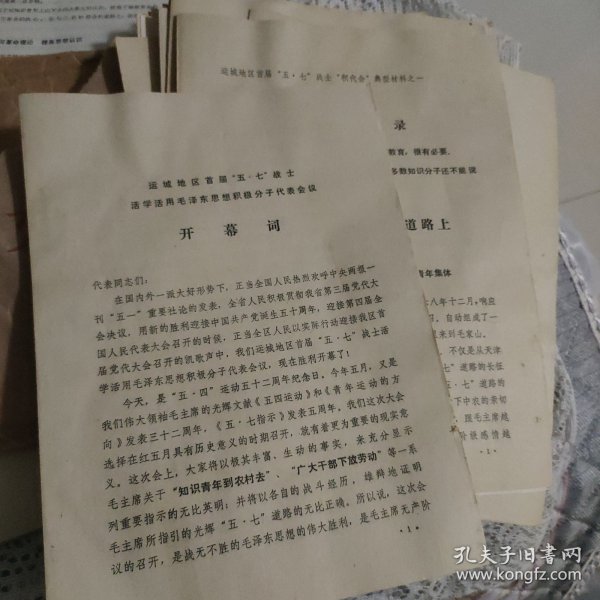 运城地区首届“五·七”战士“积代会”典型材料之一
录
教育，很有必要．
多数知识分子还不能说
道路上
青年集体
六八年十二月，响应
召，自动组成了一
里来到毛家山。
，不仅是从天津
七”道路的长征
五·七”道路的
下中农的亲切
，跟毛主席越
阶级感情越
·1·
运城地区首届“五·七”战士
活学活用毛泽东思想积极分子代表会议
开幕词
代表同志们：
在国内外一派大好形势下，正当全国人民热烈欢呼中央两报一
刊“五一”重要社论的发表，全省人民积极贯彻我省第三届党代大
会决议，用新的胜利迎接中国共产党诞生五十周年，迎接第四届全
国人民代表大会召开的时候，正当全区人民以实际行动迎接我区首
届党代大会召开的凯歌声中，我们运城地区首届“五·七”战士活
学活用毛泽东思想积极分子代表会议，现在胜利开幕了！
今天，是“五·四”运动五十二周年纪念日。今年五月，又是
我们伟大领袖毛主席的光辉文献《五四运动》和《青年运动的方
向》发表三十二周年，《五·七指示》发表五周年。我们这次大会
选择在红五月具有历史意义的时期召开，就有着更为重要的现实意
义。这次会上，大家将以极其丰富、生动的事实，来充分显示
毛主席关于“知识青年到农村去”、“广大干部下放劳动”等一系
列重要指示的无比英明；并将以各自的战斗经历，雄辩地证明
毛主席所指引的光辉“五·七”道路的无比正确。所以说，这次会
议的召开，是战无不胜的毛泽东思想的伟大胜利，是毛主席无产阶
·1·
孔夫子旧书网
www.kongfz.com